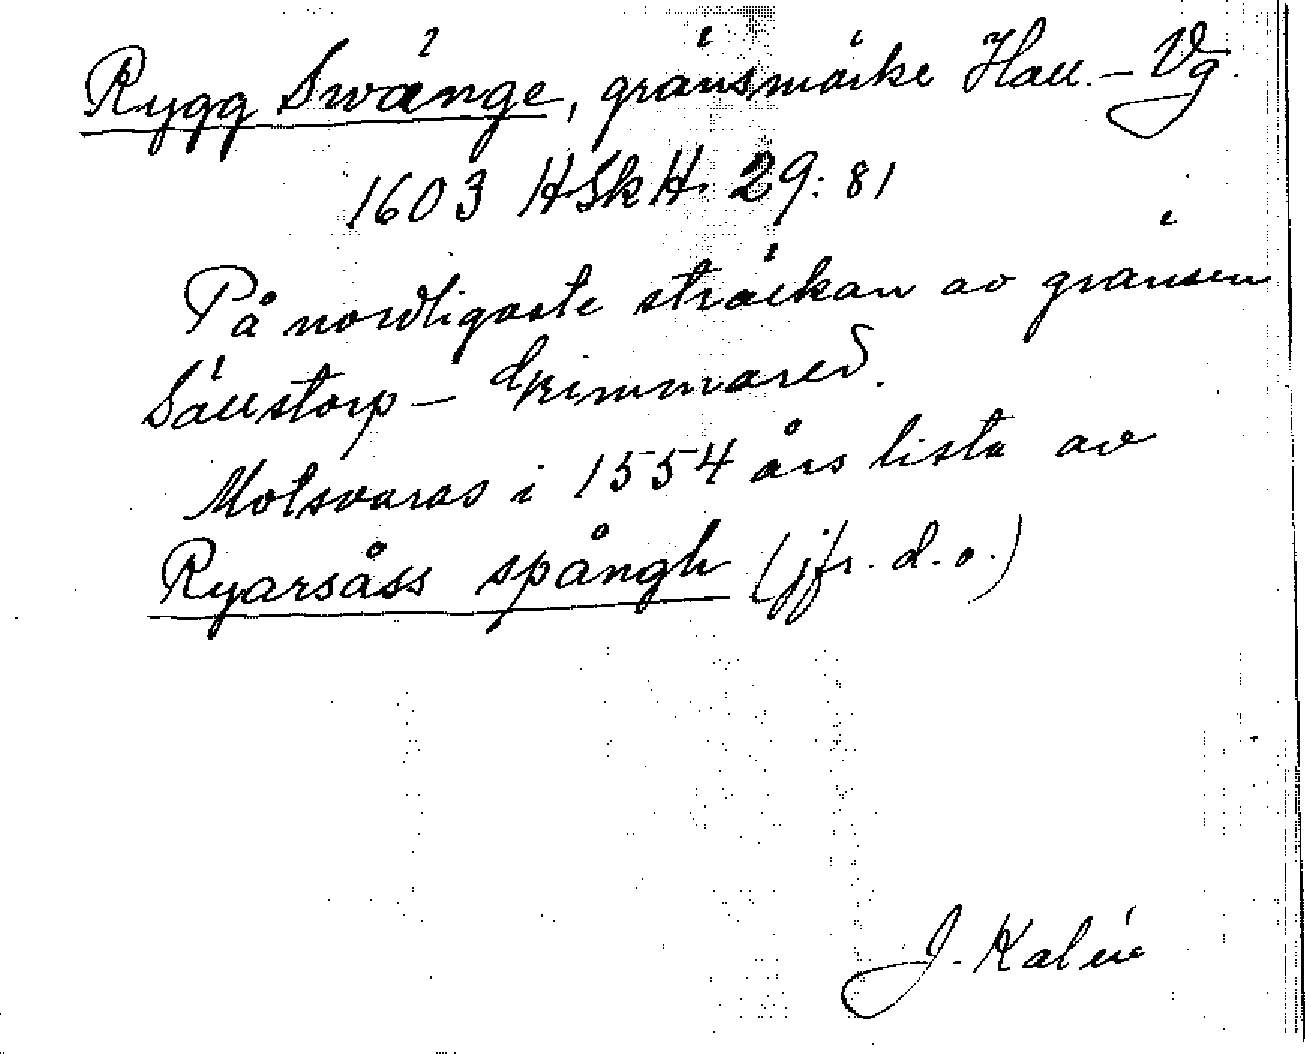 Rygg Swänge, gränsmärke Hall. – Vg.
1603 HSkH. 29: 81
På nordligaste sträckan av gränsen
Sällstorp – Grimmared.
Motsvaras i 1554 års lista av
Ryarsåss spångh (jfr. d. o.)
J. Kalén